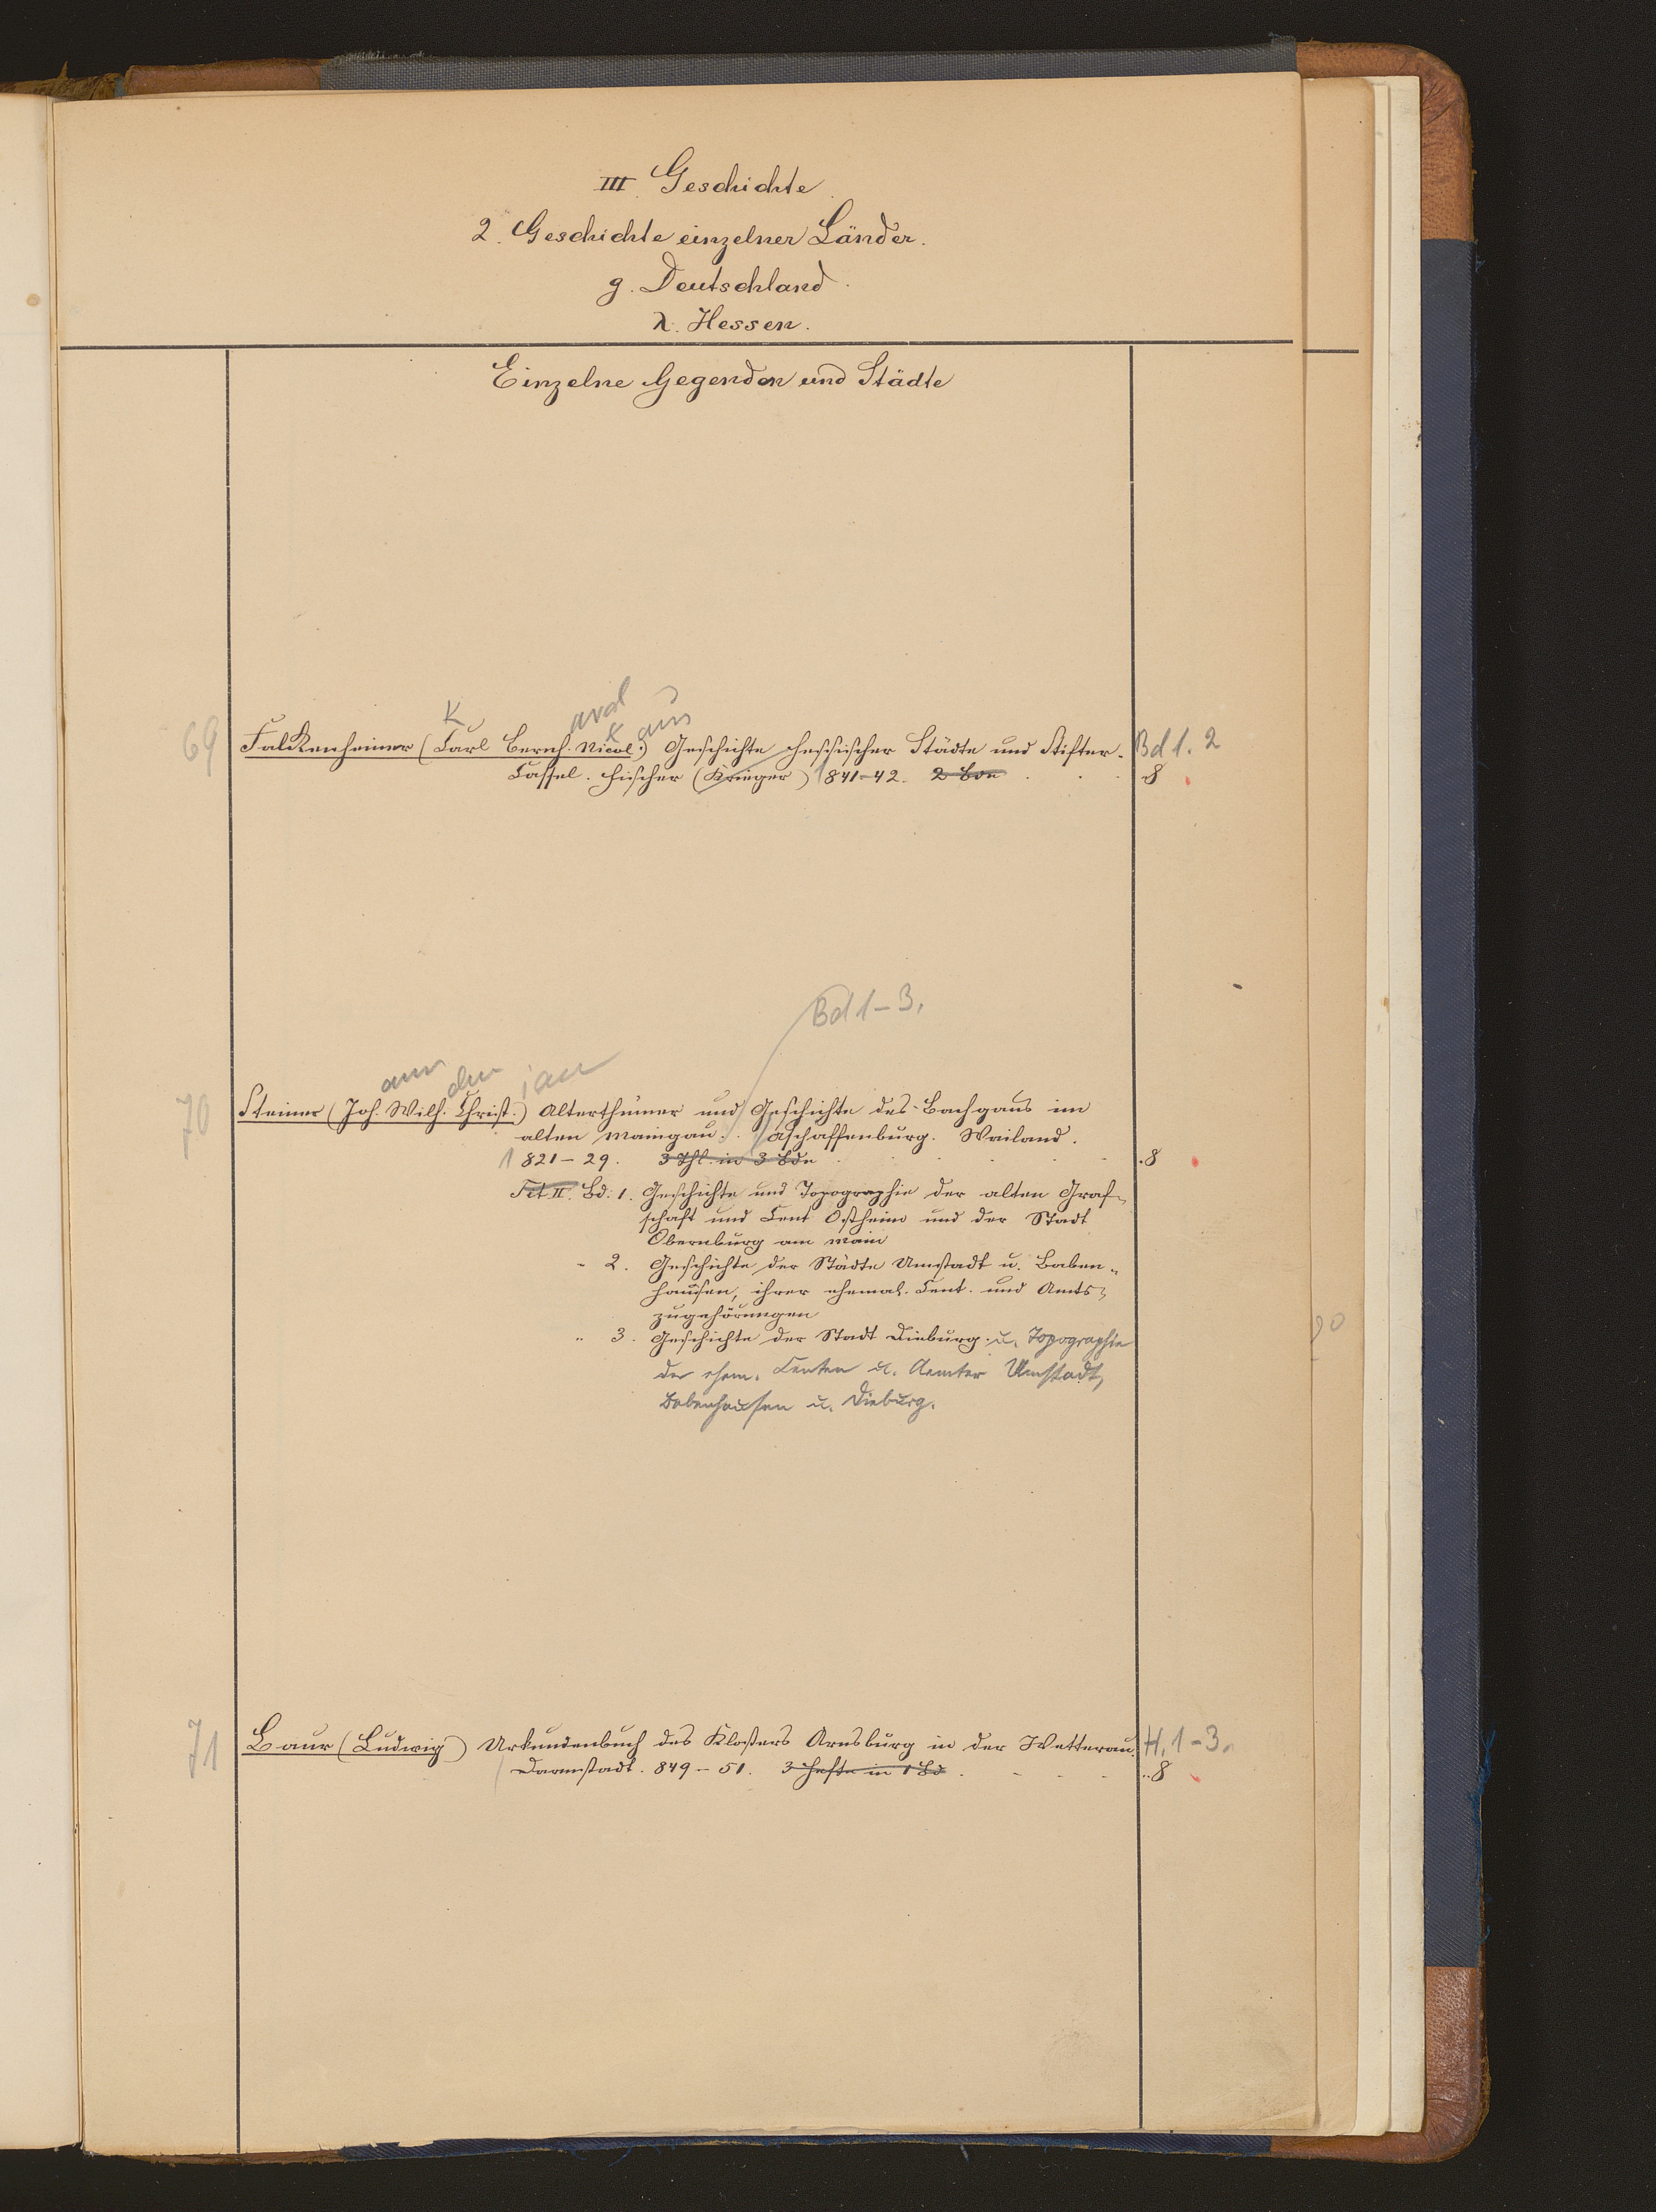 III. Geschichte
2. Geschichte einzelner Länder.
g. Deutschland.
λ. Hessen.
Einzelne Gegenden und Städte
K ard k aus
69 Falckenheiner (Carl Bernh. Nicol.) Geschichte hessischer Städte und Stifter. Bd 1. 2
Cassel. Fischer (Krieger) 1841-42. 2 Bde 8
Bd 1-3.
ann elm ian
70 Steiner (Joh. Wilh. Christ.) Alterthümer und Geschichte des Bachgaus im
alten Maingau. Aschaffenburg. Wailand.
1821-29. 3 Thl. in 3 Bde 8
Tit II. Bd. 1. Geschichte und Topographie der alten Graf-
schaft und Cent Ostheim und der Stadt
Obernburg am Main
" 2. Geschichte der Städte Umstadt u. Baben-
hausen, ihrer ehemal. Cent. und Amts-
zugehörungen
" 3. Geschichte der Stadt Dieburg. u. Topographie
der ehem. Centen u. Aemter Umstadt,
Babenhausen u. Dieburg.
71 Baur (Ludwig) Urkundenbuch des Klosters Arnsburg in der Wetterau. H. 1-3.
Darmstadt. 849-51. 3 Hefte in 1 Bd. 8